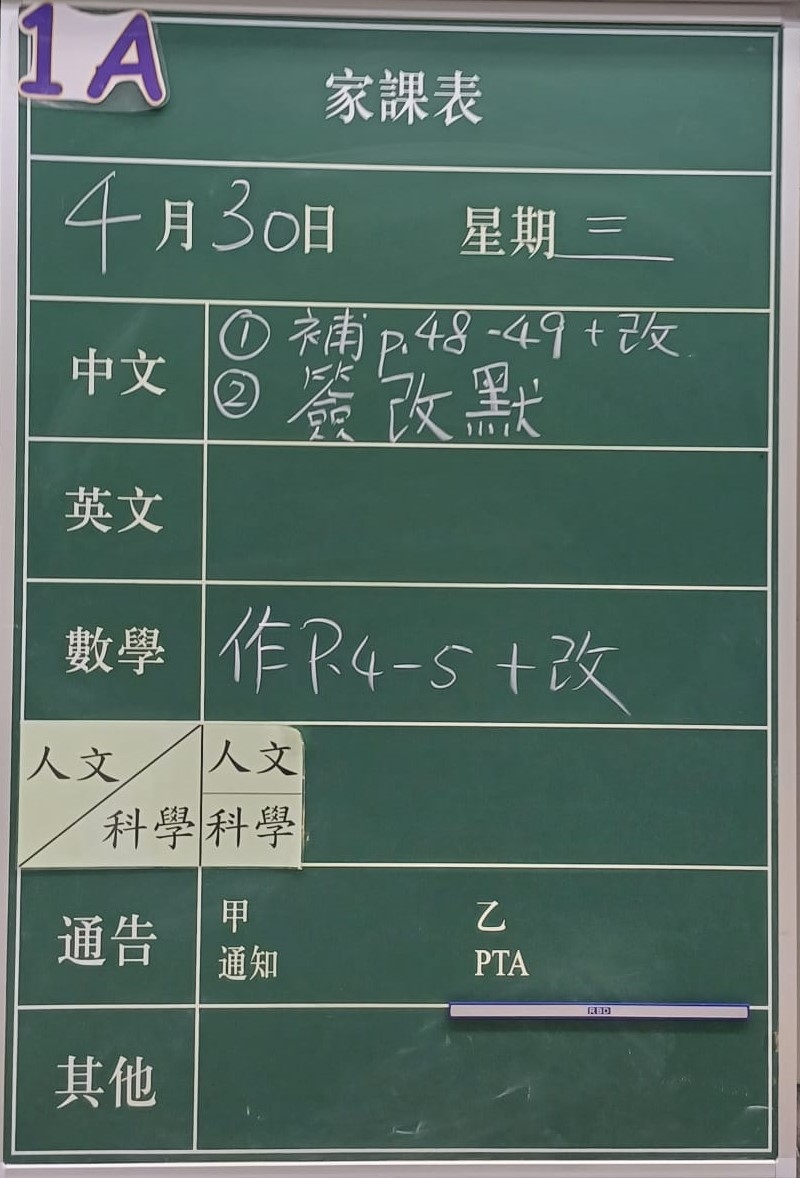 1A
家課表
4月30日 星期三
中文 ① 補 p.48-49 + 改
② 簽改默
英文
數學 作 P.4-5 + 改
人文 人文
科學 科學
通告 甲 乙
通知 PTA
RBD
其他